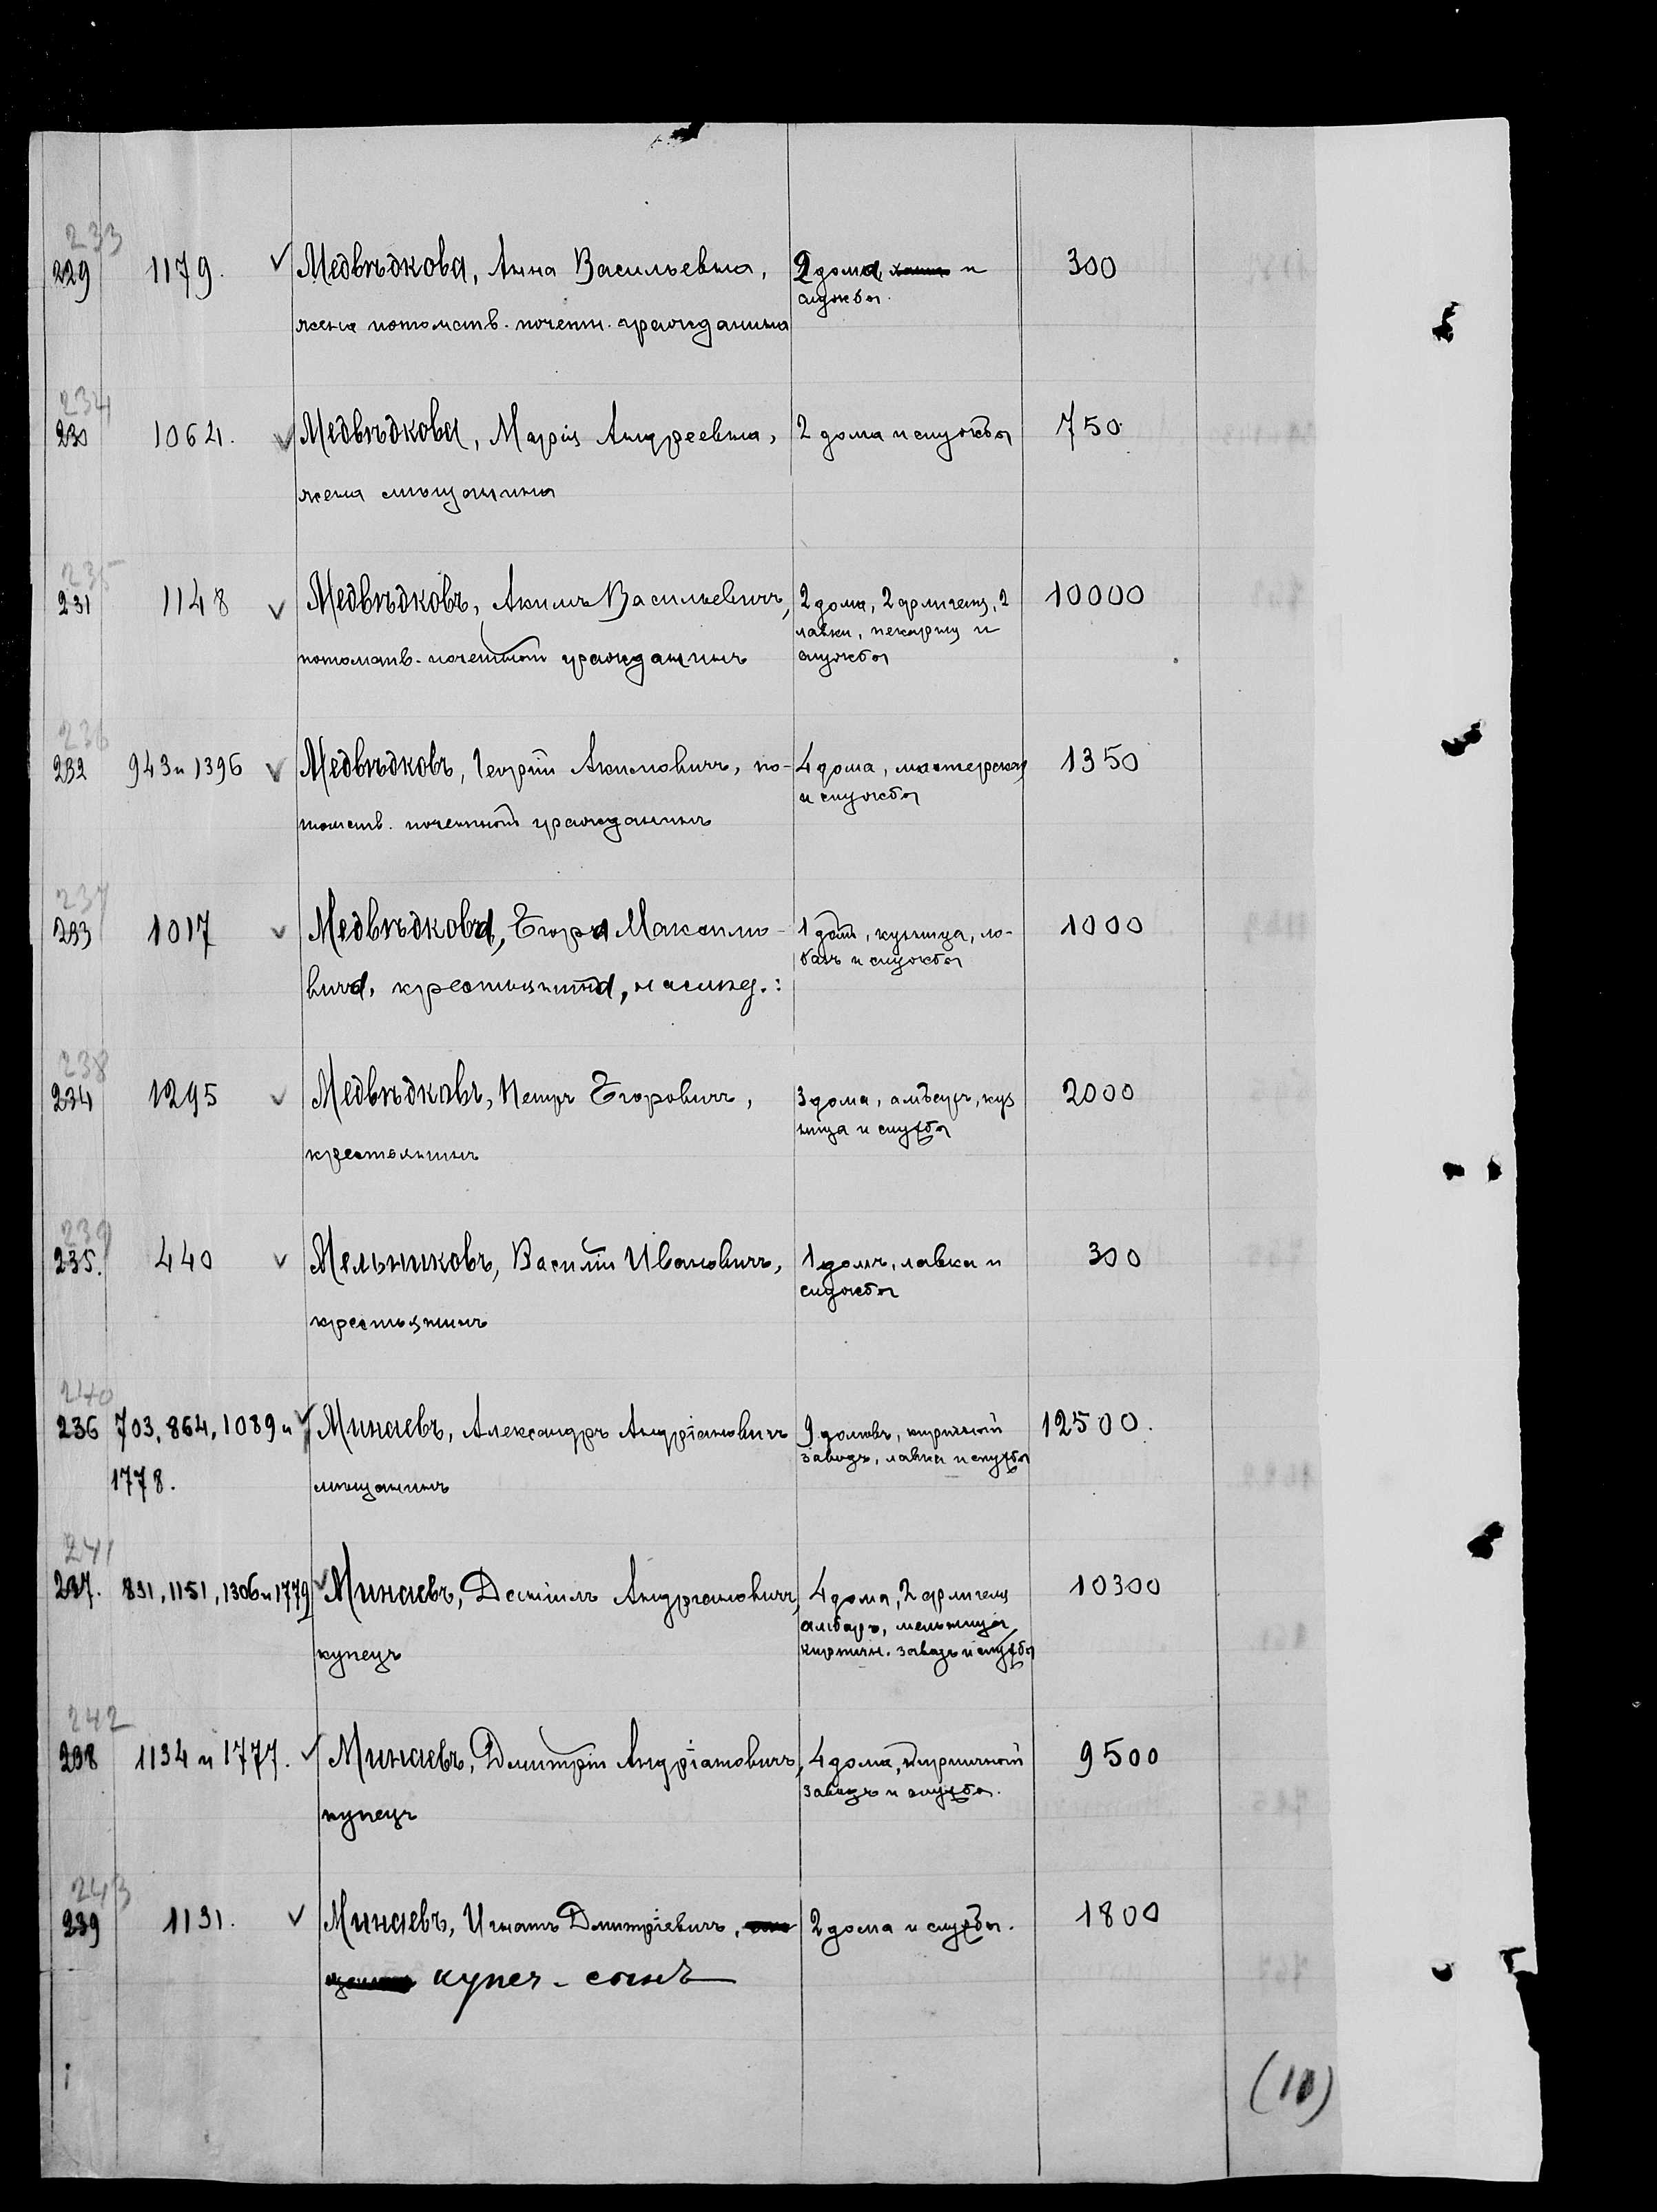 233
229 1179. ✓ Медвѣдкова, Анна Васильевна, 2 дома и 300
службы.
жена потомств. почетн. гражданина
234
230 1064. ✓ Медвѣдкова, Марія Андреевна, 2 дома и службы 750
жена мѣщанина
235
231 1148 ✓ Медвѣдковъ, Акимъ Васильевичъ, 2 дома, 2 флигеля, 2 10000
лавки, пекарня и
потомств. почетный гражданинъ службы
236
232 943 и 1396 ✓ Медвѣдковъ, Георгій Акимовичъ, по- 4 дома, мастерская 1350
и службы
томств. почетный гражданинъ
237
233 1017 ✓ Медвѣдкова, Егора Максимо- 1 домъ, кузница, ло- 1000
базъ и службы
вича, крестьянина, наслѣд.:
238
234 1295 ✓ Медвѣдковъ, Петръ Егоровичъ, 3 дома, амбаръ, куз 2000
ница и службы
крестьянинъ
239
235. 440 ✓ Мельниковъ, Василій Ивановичъ, 1 домъ, лавка и 300
службы
крестьянинъ
240
236 703, 864, 1089 и ✓ Минаевъ, Александръ Андріановичъ 9 домовъ, кирпичный 12500.
заводъ, лавка и службы
1778. мѣщанинъ
241
237. 831, 1151, 1306 и 1779 ✓ Минаевъ, Даніилъ Андріановичъ, 4 дома, 2 флигеля 10300
амбаръ, мельница,
купецъ кирпичн. заводъ и службы
242
238 1134 и 1777. ✓ Минаевъ, Дмитрій Андріановичъ, 4 дома, кирпичный 9500
заводъ и службы.
купецъ
243
239 1131. ✓ Минаевъ, Игнатъ Дмитріевичъ, 2 дома и службы. 1800
купеч-сынъ
(10)